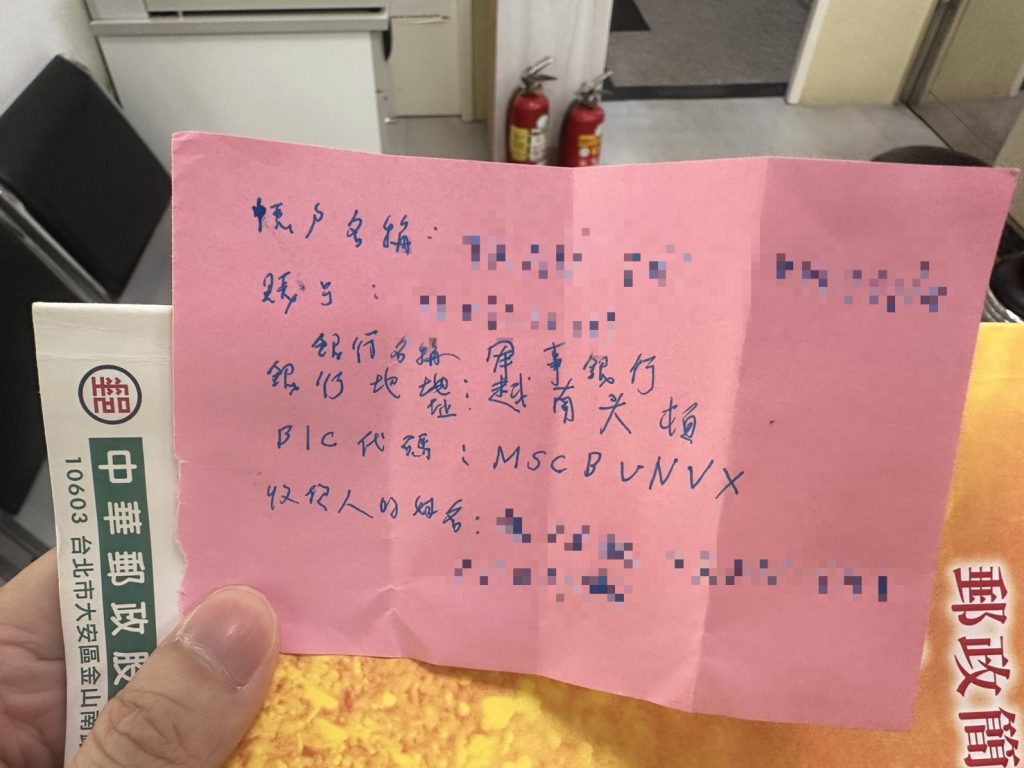 帳戶名稱：
賬号：
銀行名稱 軍事銀行
銀行地址：越南头頓
BIC代碼：MSCBVNVX
收信人的姓名：
中華郵政股
10603 台北市大安區金山南
郵政簡